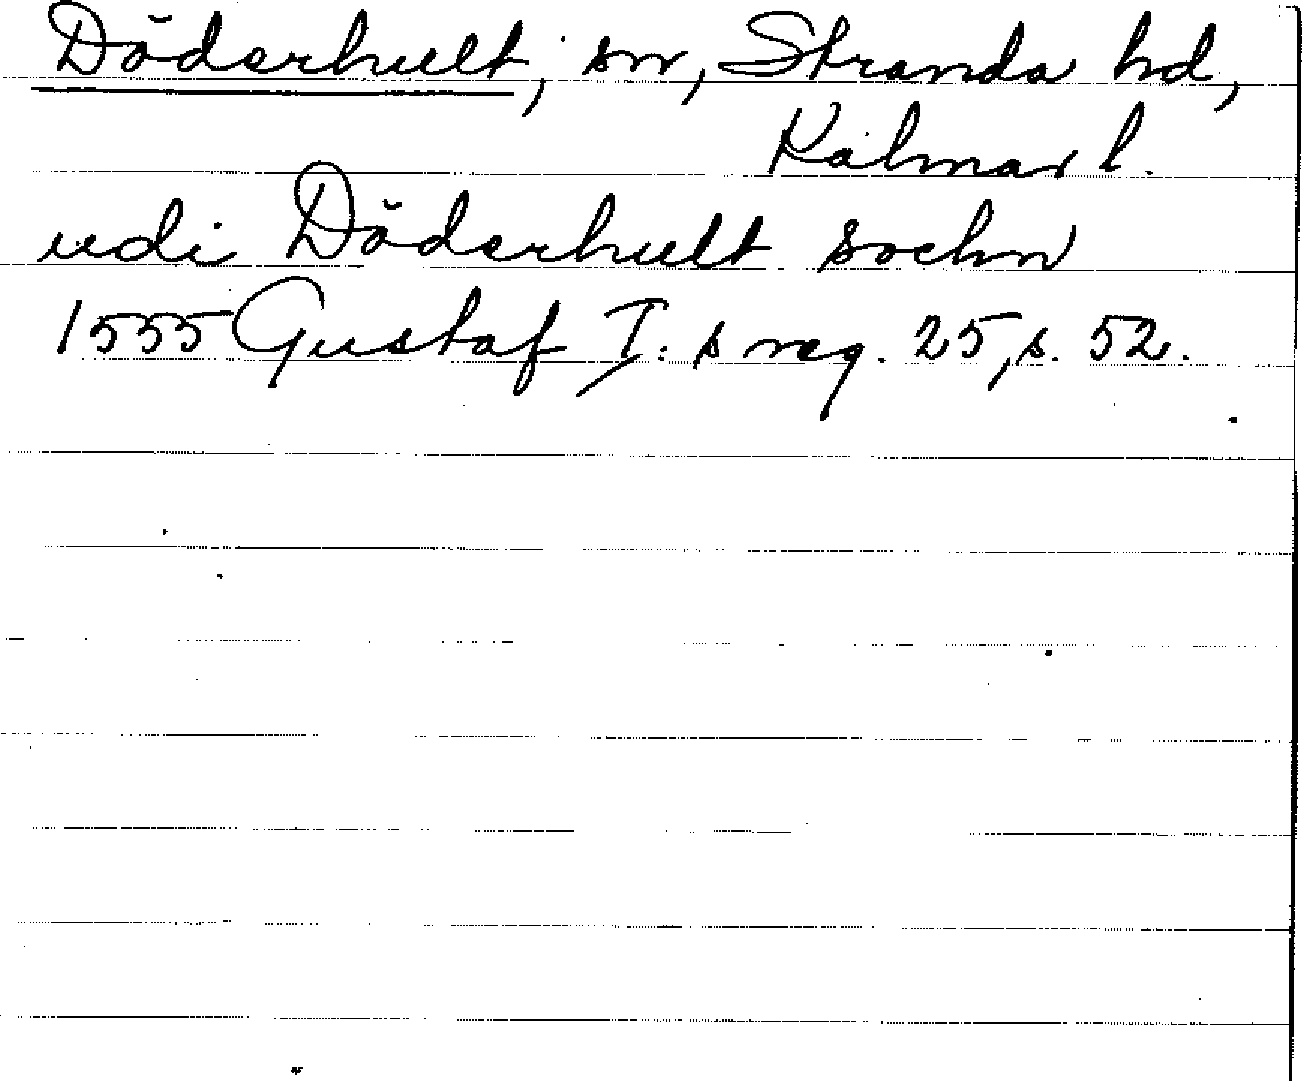 Döderhult, sn, Stranda hd,
Kalmar l.
udi Döderhult sochn
1555 Gustaf I: s reg. 25, s. 52.